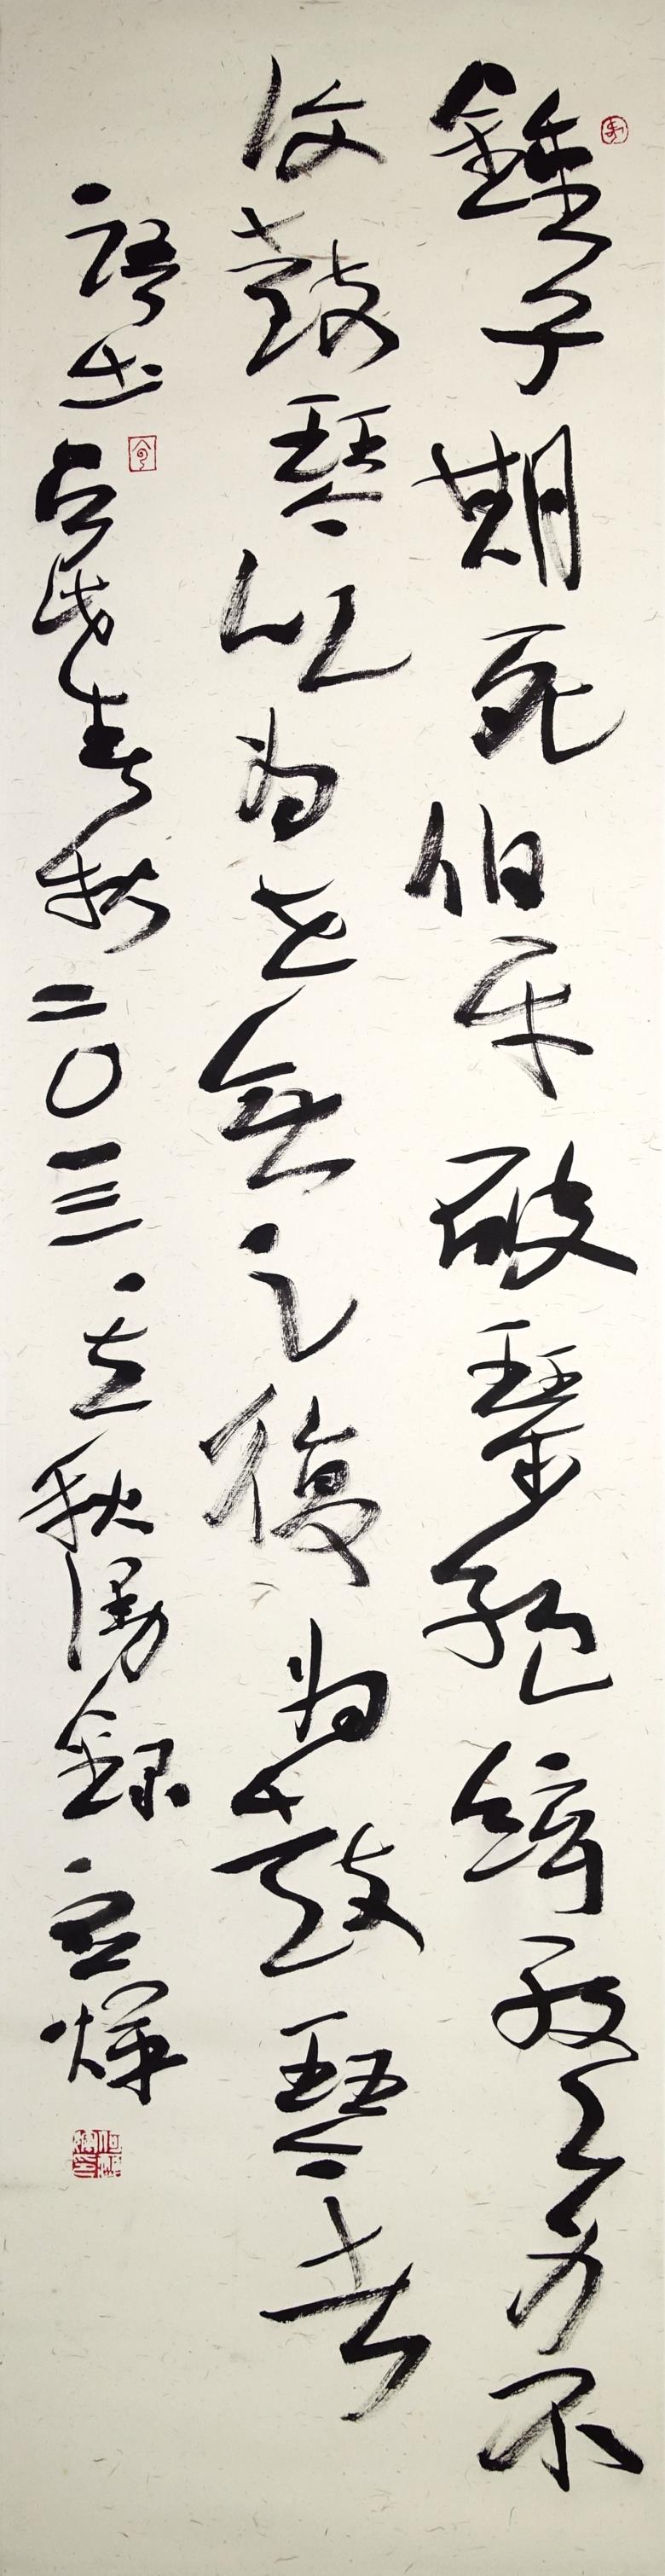 鍾子期死伯牙破琴絕絃終身不
復鼓琴以為世無足復為鼓琴者
語出呂氏春秋二〇一三立秋漫錄燁